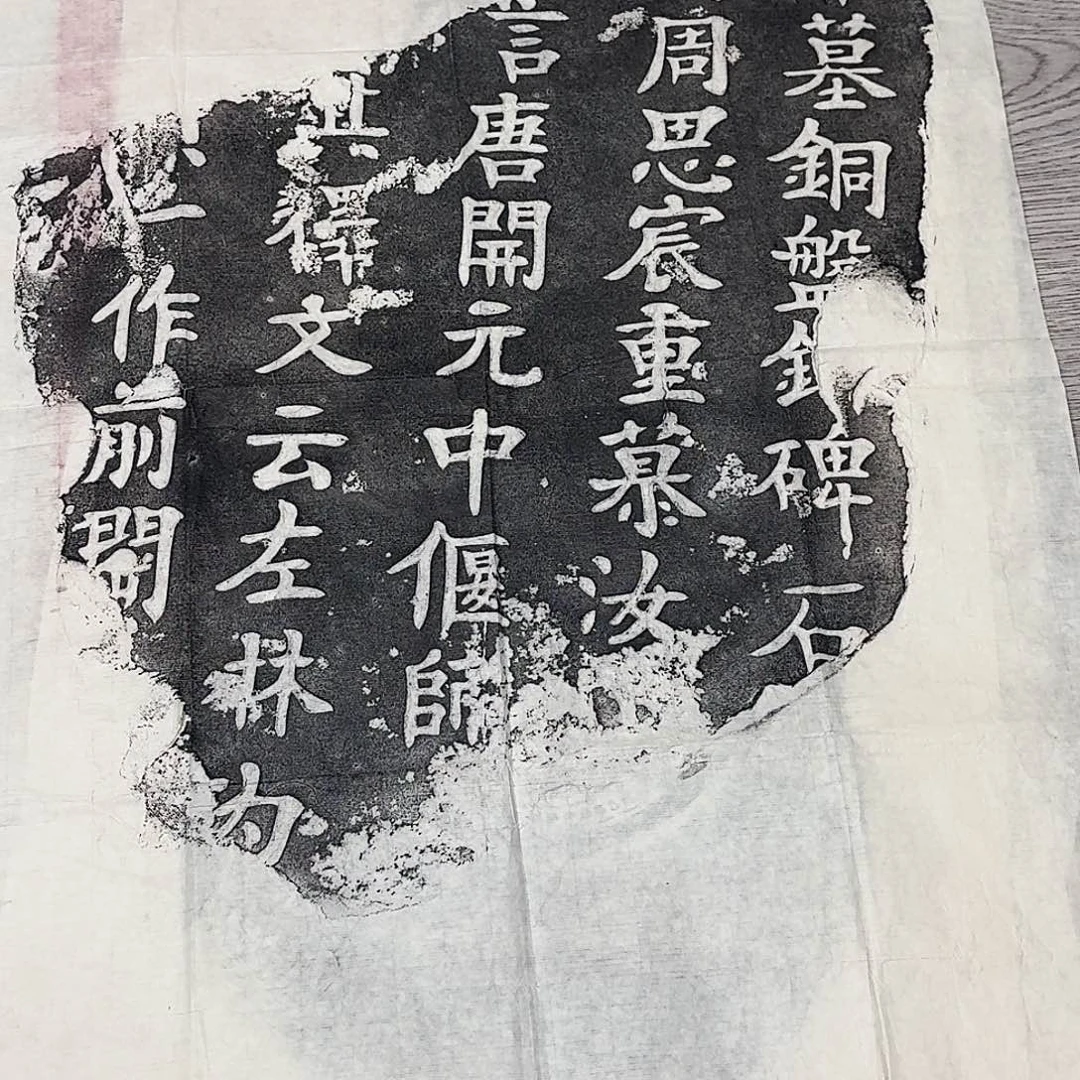 墓銅盤銘碑石
周思宸重摹汝
言唐開元中偃師
其釋文云左林右
作前岡